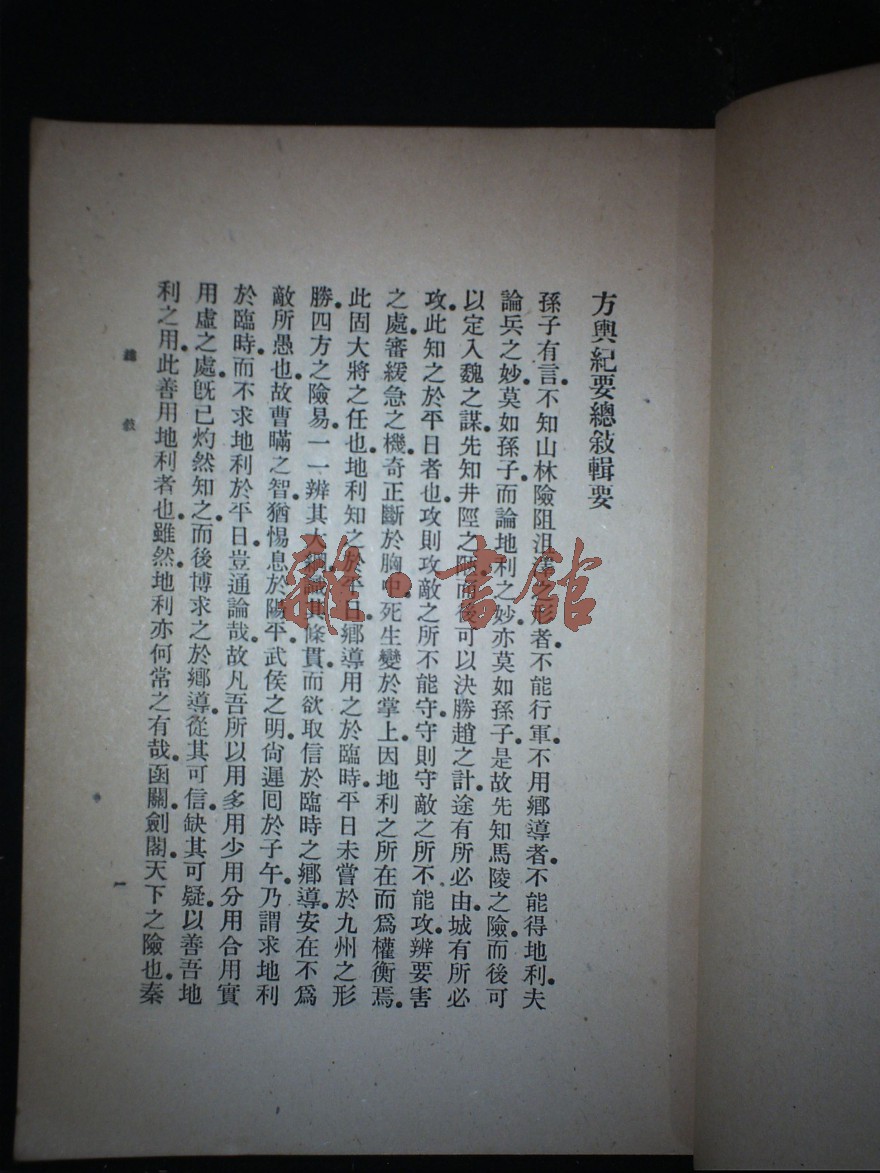 方輿紀要總敘輯要
孫子有言不知山林險阻沮澤之形者不能行軍不用鄉導者不能得地利夫
論兵之妙莫如孫子而論地利之妙亦莫如孫子是故先知馬陵之險而後可
以定入魏之謀先知井陘之而後可以決勝趙之計途有所必由城有所必
攻此知之於平日者也攻則攻敵之所不能守守則守敵之所不能攻辨要害
之處審緩急之機奇正斷於胸中死生變於掌上因地利之所在而爲權衡焉
此固大將之任也地利知之於平日鄉導用之於臨時平日未嘗於九州之形
勝四方之險易一一辨其大綱識其條貫而欲取信於臨時之鄉導安在不爲
敵所愚也故曹瞞之智猶惕息於陽平武侯之明尙遲囘於子午乃謂求地利
於臨時而不求地利於平日豈通論哉故凡吾所以用多用少用分用合用實
用虛之處旣已灼然知之而後博求之於鄉導從其可信缺其可疑以善吾地
利之用此善用地利者也雖然地利亦何常之有哉函關劍閣天下之險也秦
總敘
一
雜·書館